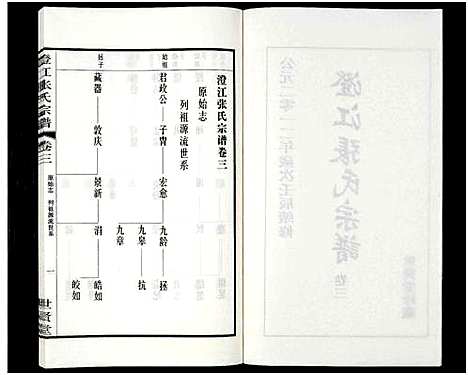 澄江张氏宗谱卷三
原始志
列祖源流世系
始祖
君政公 子胄 宏愈 九龄 拯
九皋 抗
九章
藏器 敦庆 景新 涓 皓如
皎如
澄江张氏宗谱 卷三
原始志 列祖源流世系
一
世贤堂
公元二零一一年岁次壬辰续修
澄江張氏宗譜 卷三